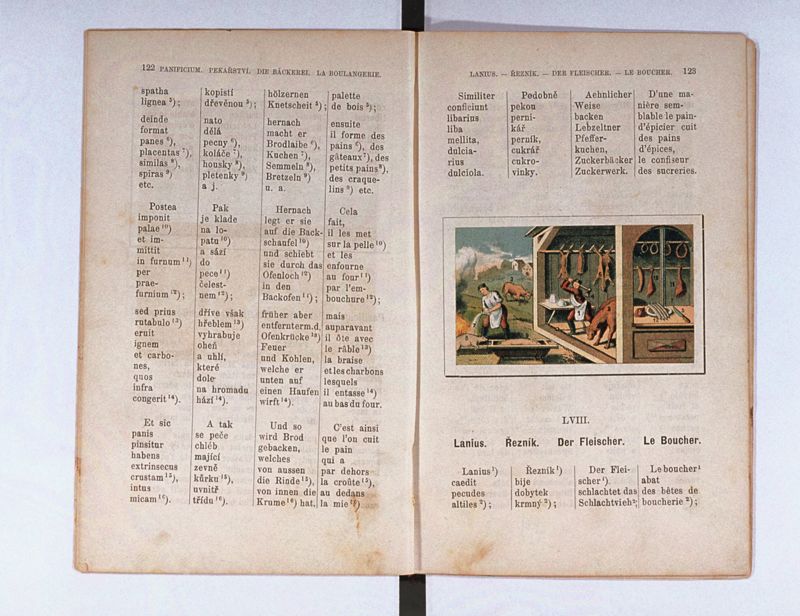 122 PANIFICIUM. PEKAŘSTVÍ. DIE BÄCKEREI. LA BOULANGERIE.
spatha
lignea ⁵);
deinde
format
panes ⁶),
placentas ⁷),
similas ⁸),
spiras ⁹)
etc.
Postea
imponit
palae ¹⁰)
et im-
mittit
in furnum ¹¹)
per
prae-
furnium ¹²);
sed prius
rutabulo ¹³)
eruit
ignem
et carbo-
nes,
quos
infra
congerit ¹⁴).
Et sic
panis
pinsitur
habens
extrinsecus
crustam ¹⁵),
intus
micam ¹⁶).
kopistí
dřevěnou ⁵);
nato
dělá
pecny ⁶),
koláče ⁷),
housky ⁸),
pletenky ⁹)
a j.
Pak
je klade
na lo-
patu ¹⁰)
a sází
do
pece ¹¹)
čelest-
nem ¹²);
dříve však
hřeblem ¹³)
vyhrabuje
oheň
a uhlí,
které
dole
na hromadu
hází ¹⁴).
A tak
se peče
chléb
mající
zevně
kůrku ¹⁵),
uvnitř
třídu ¹⁶).
hölzernen
Knetscheit ⁵);
hernach
macht er
Brodlaibe ⁶),
Kuchen ⁷),
Semmeln ⁸),
Bretzeln ⁹)
u. a.
Hernach
legt er sie
auf die Back-
schaufel ¹⁰)
und schiebt
sie durch das
Ofenloch ¹²)
in den
Backofen ¹¹);
früher aber
entfernt er m. d.
Ofenkrücke ¹³)
Feuer
und Kohlen,
welche er
unten auf
einen Haufen
wirft ¹⁴).
Und so
wird Brod
gebacken,
welches
von aussen
die Rinde ¹⁵),
von innen die
Krume ¹⁶) hat.
palette
de bois ⁵);
ensuite
il forme des
pains ⁶), des
gâteaux ⁷), des
petits pains ⁸),
des craque-
lins ⁹) etc.
Cela
fait,
il les met
sur la pelle ¹⁰)
et les
enfourne
au four ¹¹)
par l'em-
bouchure ¹²);
mais
auparavant
il ôte avec
le râble ¹³)
la braise
et les charbons
lesquels
il entasse ¹⁴)
au bas du four.
C'est ainsi
que l'on cuit
le pain
qui a
par dehors
la croûte ¹⁵),
au dedans
la mie ¹⁶)
LANIUS. — ŘEZNÍK. — DER FLEISCHER. — LE BOUCHER. 123
Similiter
conficiunt
libarius
liba
mellita,
dulcia-
rius
dulciola.
Podobně
pekou
perni-
kář
perník,
cukrář
cukro-
vinky.
Aehnlicher
Weise
backen
Lebzeltner
Pfeffer-
kuchen,
Zuckerbäcker
Zuckerwerk.
D'une ma-
nière sem-
blable le pain-
d'épicier cuit
des pains
d'épices,
le confiseur
des sucreries.
LVIII.
Lanius. Řezník. Der Fleischer. Le Boucher.
Lanius ¹)
caedit
pecudes
altiles ²);
Řezník ¹)
bije
dobytek
krmný ²);
Der Flei-
scher ¹).
schlachtet das
Schlachtvieh ²;
Le boucher ¹
abat
des bêtes de
boucherie ²);